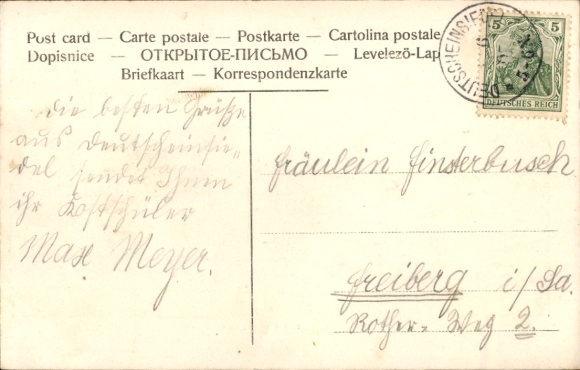 Post card — Carte postale — Postkarte — Cartolina postale
Dopisnice — ОТКРЫТОЕ-ПИСЬМО — Levelező-Lap
Briefkaart — Korrespondenzkarte
DEUTSCHEINSIEDEL
5 5
DEUTSCHES REICH
Die besten Grüße
aus Deutscheinsie-
del sendet Ihnen
ihr Kostschüler
Max Meyer.
Fräulein Finsterbusch
Freiberg i/Sa.
Rother-Weg 2.